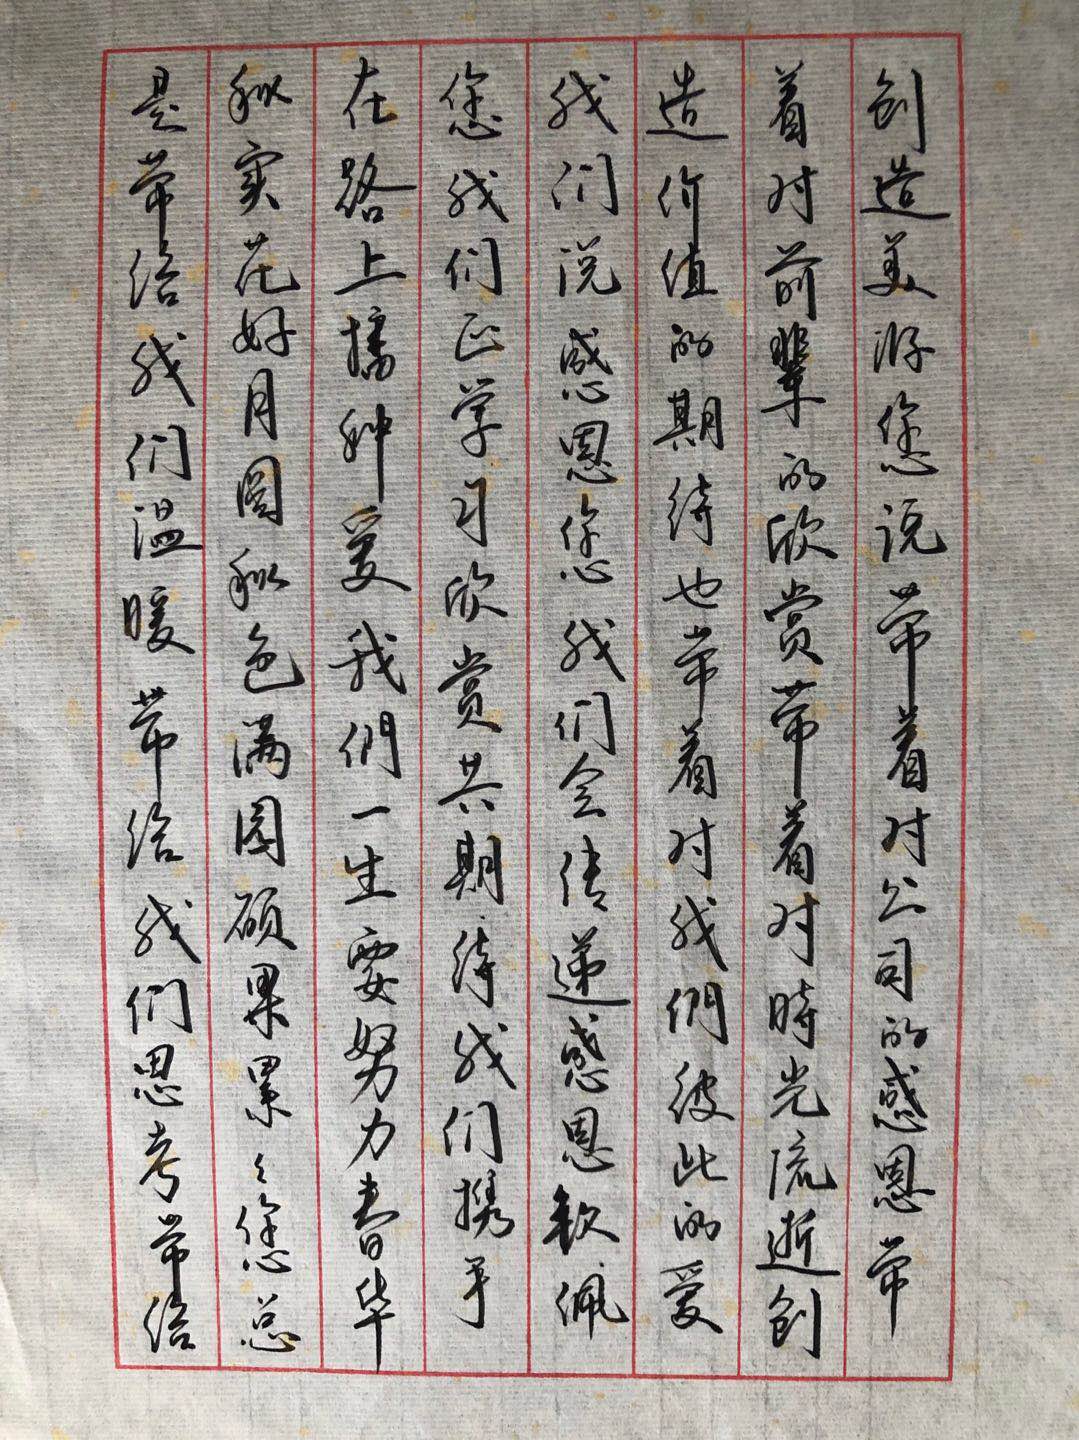 创造美好您说带着对公司的感恩带
着对前辈的欣赏带着对時光流逝创
造价值的期待也带着对我們彼此的爱
我们说感恩您我们会传递感恩钦佩
您我们正学习欣赏共期待我们携手
在路上播种爱我們一生要努力春华
秋实花好月圆秋色满园硕果累々您总
是带给我们温暖带给我们思考带给